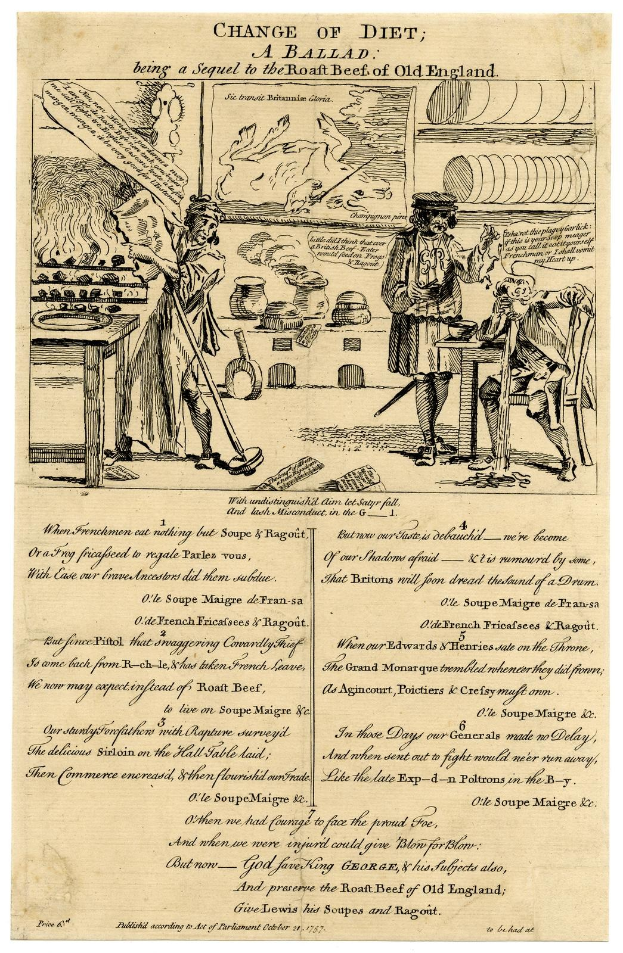 CHANGE OF DIET;
A BALLAD:
being a Sequel to the Roast Beef of Old England.
Sic transit Britanniæ Gloria.
Champignon pinx
little did I think that ever
a British Beef-Eater
would feed on Frogs
& Ragout
this plaguy Garlick:
if this is your Soup maigre
as you call it eat it yourself
Frenchman or I shall vomit
my Heart up
With undistinguish'd Aim let Satyr fall,
And lash Misconduct, in the G___l.
1
When Frenchmen eat nothing but Soupe & Ragoût,
Or a Frog fricasseed to regale Parlez vous,
With Ease our brave Ancestors did them subdue.
O! le Soupe Maigre de Fran-sa
O! de French Fricassees & Ragoût.
2
But since Pistol that swaggering Cowardly Thief
Is come back from R-ch-le, & has taken French Leave,
We now may expect instead of Roast Beef,
to live on Soupe Maigre &c
3
Our sturdy Forefathers with Rapture survey'd
The delicious Sirloin on the Hall Table laid;
Then Commerce encreas'd, & then flourish'd our Trade.
O! le Soupe Maigre &c.
4
But now our Taste is debauch'd __ we're become
Of our Shadows afraid __ & t is rumour'd by some,
That Britons will soon dread the Sound of a Drum.
O! le Soupe Maigre de Fran-sa
O! de French Fricassees & Ragoût.
5
When our Edwards & Henries sate on the Throne,
The Grand Monarque trembled whene'er they did frown;
As Agincourt, Poictiers & Cressy must own.
O! le Soupe Maigre &c.
6
In those Days our Generals made no Delay,
And when sent out to fight would ne'er run away,
Like the late Exp-d-n Poltrons in the B-y.
O! le Soupe Maigre &c.
7
O! then we had Courage to face the proud Foe,
And when we were injur'd could give Blow for Blow:
But now __ God save King GEORGE, & his Subjects also,
And preserve the Roast Beef of Old England;
Give Lewis his Soupes and Ragoût.
Price 6.d
Publish'd according to Act of Parliament October 21, 1757.
to be had at